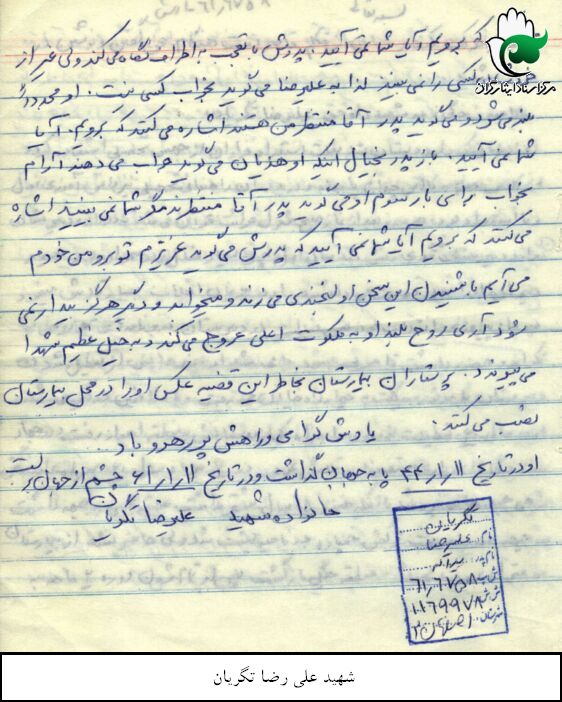 بسمه تعالی
که برویم آیا شما نمی آیید. پدرش با تعجب به اطراف نگاه می کند ولی غیر از
کسی را نمی بیند لذا به علیرضا می گوید بخواب کسی نیست. او مجدداً
بلند می شود و می گوید پدر آقا منتظر من هستند اشاره می کنند که برویم. آیا
شما نمی آیید. باز پدر بخیال اینکه او هذیان می گوید جواب می دهند آرام
بخواب برای بار سوم او می گوید پدر آقا منتظرند مگر شما نمی بینید اشاره
می کنند که برویم آیا شما نمی آیید که پدرش می گوید عزیزم تو برو من خودم
می آیم با شنیدن این سخن او لبخندی می زند و میخوابد و دیگر هرگز بیدار نمی
شود آری روح بلند او به ملکوت اعلی عروج می کند و به خیل عظیم شهدا
می پیوندد. پرستاران بیمارستان بخاطر این قضیه عکس او را در محل بیمارستان
نصب می کنند.
یادش گرامی و راهش پر رهرو باد...
او در تاریخ ۱۱ر۱ر۴۴ پا به جهان گذاشت و در تاریخ ۱۱ر۱ر۶۱ چشم از جهان بر بست
خانواده شهید علیرضا تگریان
تگریان
نام: علیرضا
نام پدر:
۶۱٫۶۷۵۸
۱۰۱۶۹۹۷۸
اصفهان ۳
مرکز اسناد ایثارگران
شهید علی رضا تگریان